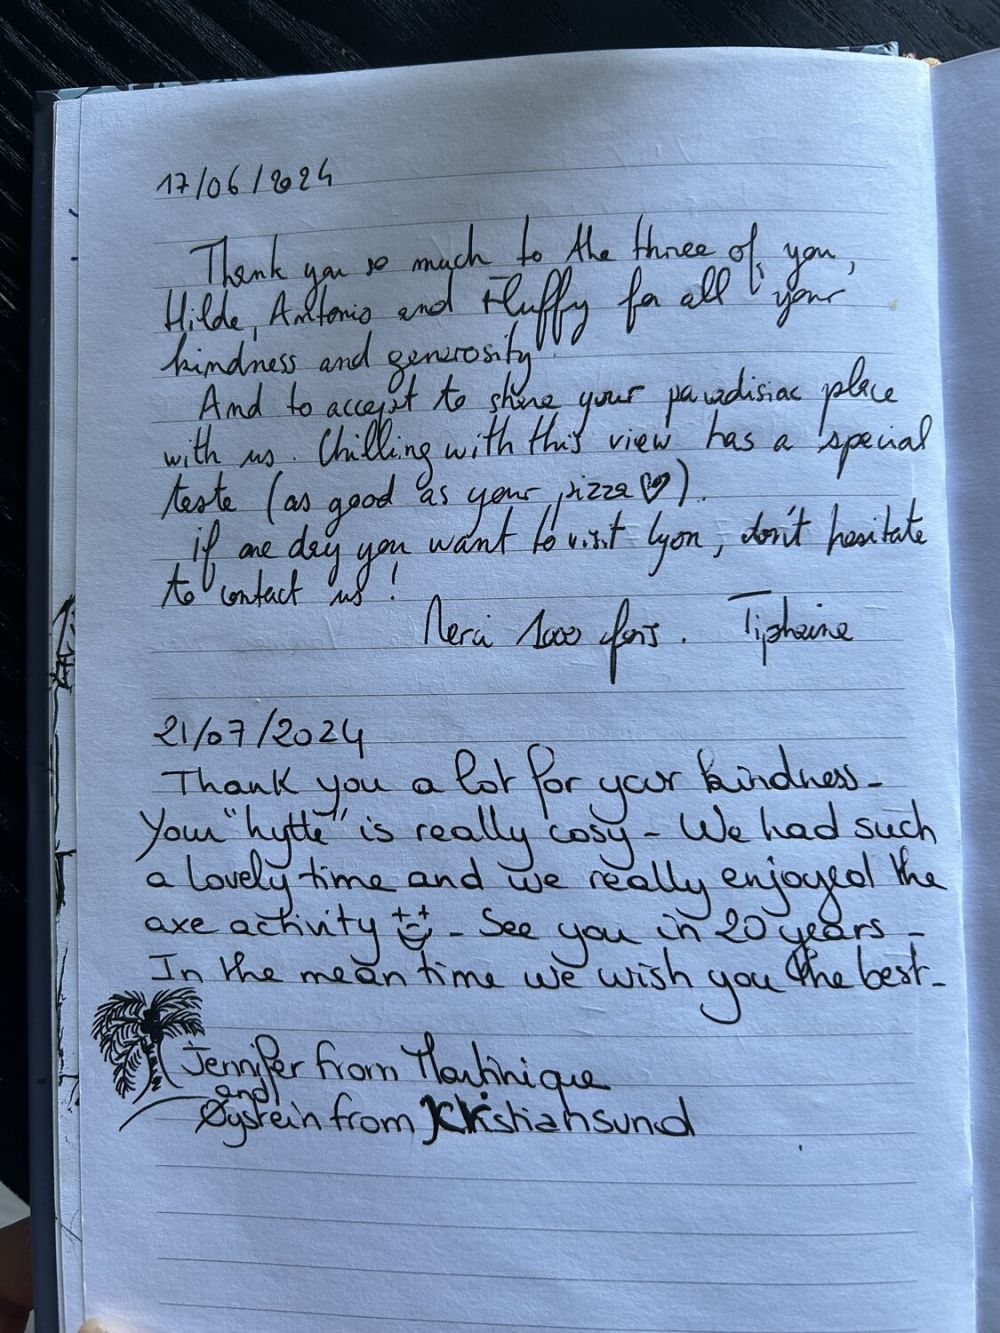 17/06/2024
Thank you so much to the three of you,
Hilde, Antonio and Fluffy for all your
kindness and generosity
And to accept to share your paradisiac place
with us. Chilling with this view has a special
teste (as good as your pizza ♡).
if one day you want to visit Lyon, don't hesitate
to contact us !
Merci 1000 fois. Tiphaine
21/07/2024
Thank you a lot for your kindness -
Your "hytte" is really cosy - We had such
a lovely time and we really enjoyed the
axe activity - See you in 20 years -
In the mean time we wish you the best -
Jennifer from Martinique
and
Øystein from Kristiansund